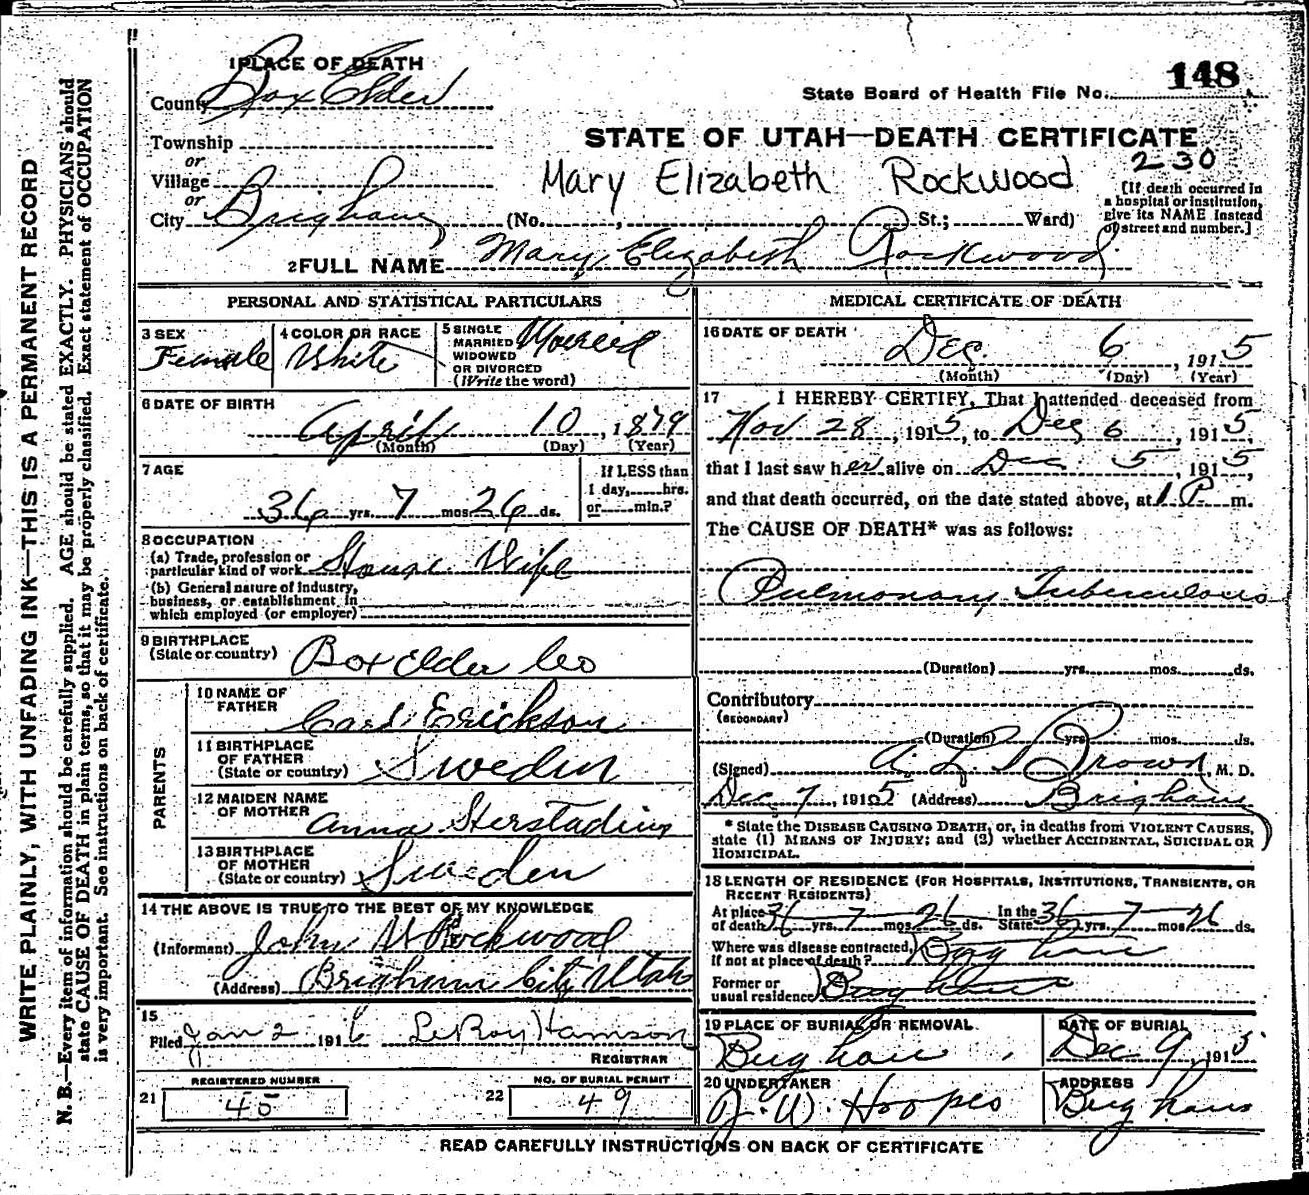 1 PLACE OF DEATH
County Box Elder
State Board of Health File No. 148
Township
or
Village
or
City Brigham
STATE OF UTAH—DEATH CERTIFICATE
2-30
Mary Elizabeth Rockwood
(No. , St.; Ward)
[If death occurred in
a hospital or institution,
give its NAME instead
of street and number.]
2 FULL NAME Mary Elizabeth Rockwood
PERSONAL AND STATISTICAL PARTICULARS
3 SEX
Female
4 COLOR OR RACE
White
5 SINGLE
MARRIED
WIDOWED
OR DIVORCED
(Write the word)
Married
6 DATE OF BIRTH
April 10, 1879
(Month) (Day) (Year)
7 AGE
36 yrs. 7 mos 26 ds.
If LESS than
1 day, hrs.
or min.?
8 OCCUPATION
(a) Trade, profession or
particular kind of work House Wife
(b) General nature of industry,
business, or establishment in
which employed (or employer)
9 BIRTHPLACE
(State or country) Box Elder Co
PARENTS
10 NAME OF
FATHER Carl Erickson
11 BIRTHPLACE
OF FATHER
(State or country) Sweden
12 MAIDEN NAME
OF MOTHER Anna
13 BIRTHPLACE
OF MOTHER
(State or country) Sweden
14 THE ABOVE IS TRUE TO THE BEST OF MY KNOWLEDGE
(Informant) John W Rockwood
(Address) Brigham City Utah
15
Filed Jan 2 1916 LeRoy Hamson
REGISTRAR
21
REGISTERED NUMBER
45
22
NO. OF BURIAL PERMIT
49
MEDICAL CERTIFICATE OF DEATH
16 DATE OF DEATH
Dec. 6, 1915
(Month) (Day) (Year)
17 I HEREBY CERTIFY, That I attended deceased from
Nov 28, 1915, to Dec 6, 1915,
that I last saw her alive on Dec 5, 1915,
and that death occurred, on the date stated above, at 1 P m.
The CAUSE OF DEATH* was as follows:
Pulmonary Tuberculosis
(Duration) yrs. mos. ds.
Contributory
(SECONDARY)
(Duration) yrs. mos. ds.
(Signed) A. L. Brown, M. D.
Dec 7, 1915 (Address) Brigham
* State the DISEASE CAUSING DEATH, or, in deaths from VIOLENT CAUSES,
state (1) MEANS OF INJURY; and (2) whether ACCIDENTAL, SUICIDAL OR
HOMICIDAL.
18 LENGTH OF RESIDENCE (FOR HOSPITALS, INSTITUTIONS, TRANSIENTS, OR
RECENT RESIDENTS)
At place
of death 36 yrs. 7 mos. 26 ds. In the
State 36 yrs. 7 mos 26 ds.
Where was disease contracted,
if not at place of death? Brigham
Former or
usual residence Brigham
19 PLACE OF BURIAL OR REMOVAL
Brigham
DATE OF BURIAL
Dec 9, 1915
20 UNDERTAKER
J. W. Hoopes
ADDRESS
Brigham
READ CAREFULLY INSTRUCTIONS ON BACK OF CERTIFICATE
WRITE PLAINLY, WITH UNFADING INK—THIS IS A PERMANENT RECORD
N. B.—Every item of information should be carefully supplied. AGE should be stated EXACTLY. PHYSICIANS should
state CAUSE OF DEATH in plain terms, so that it may be properly classified. Exact statement of OCCUPATION
is very important. See instructions on back of certificate.